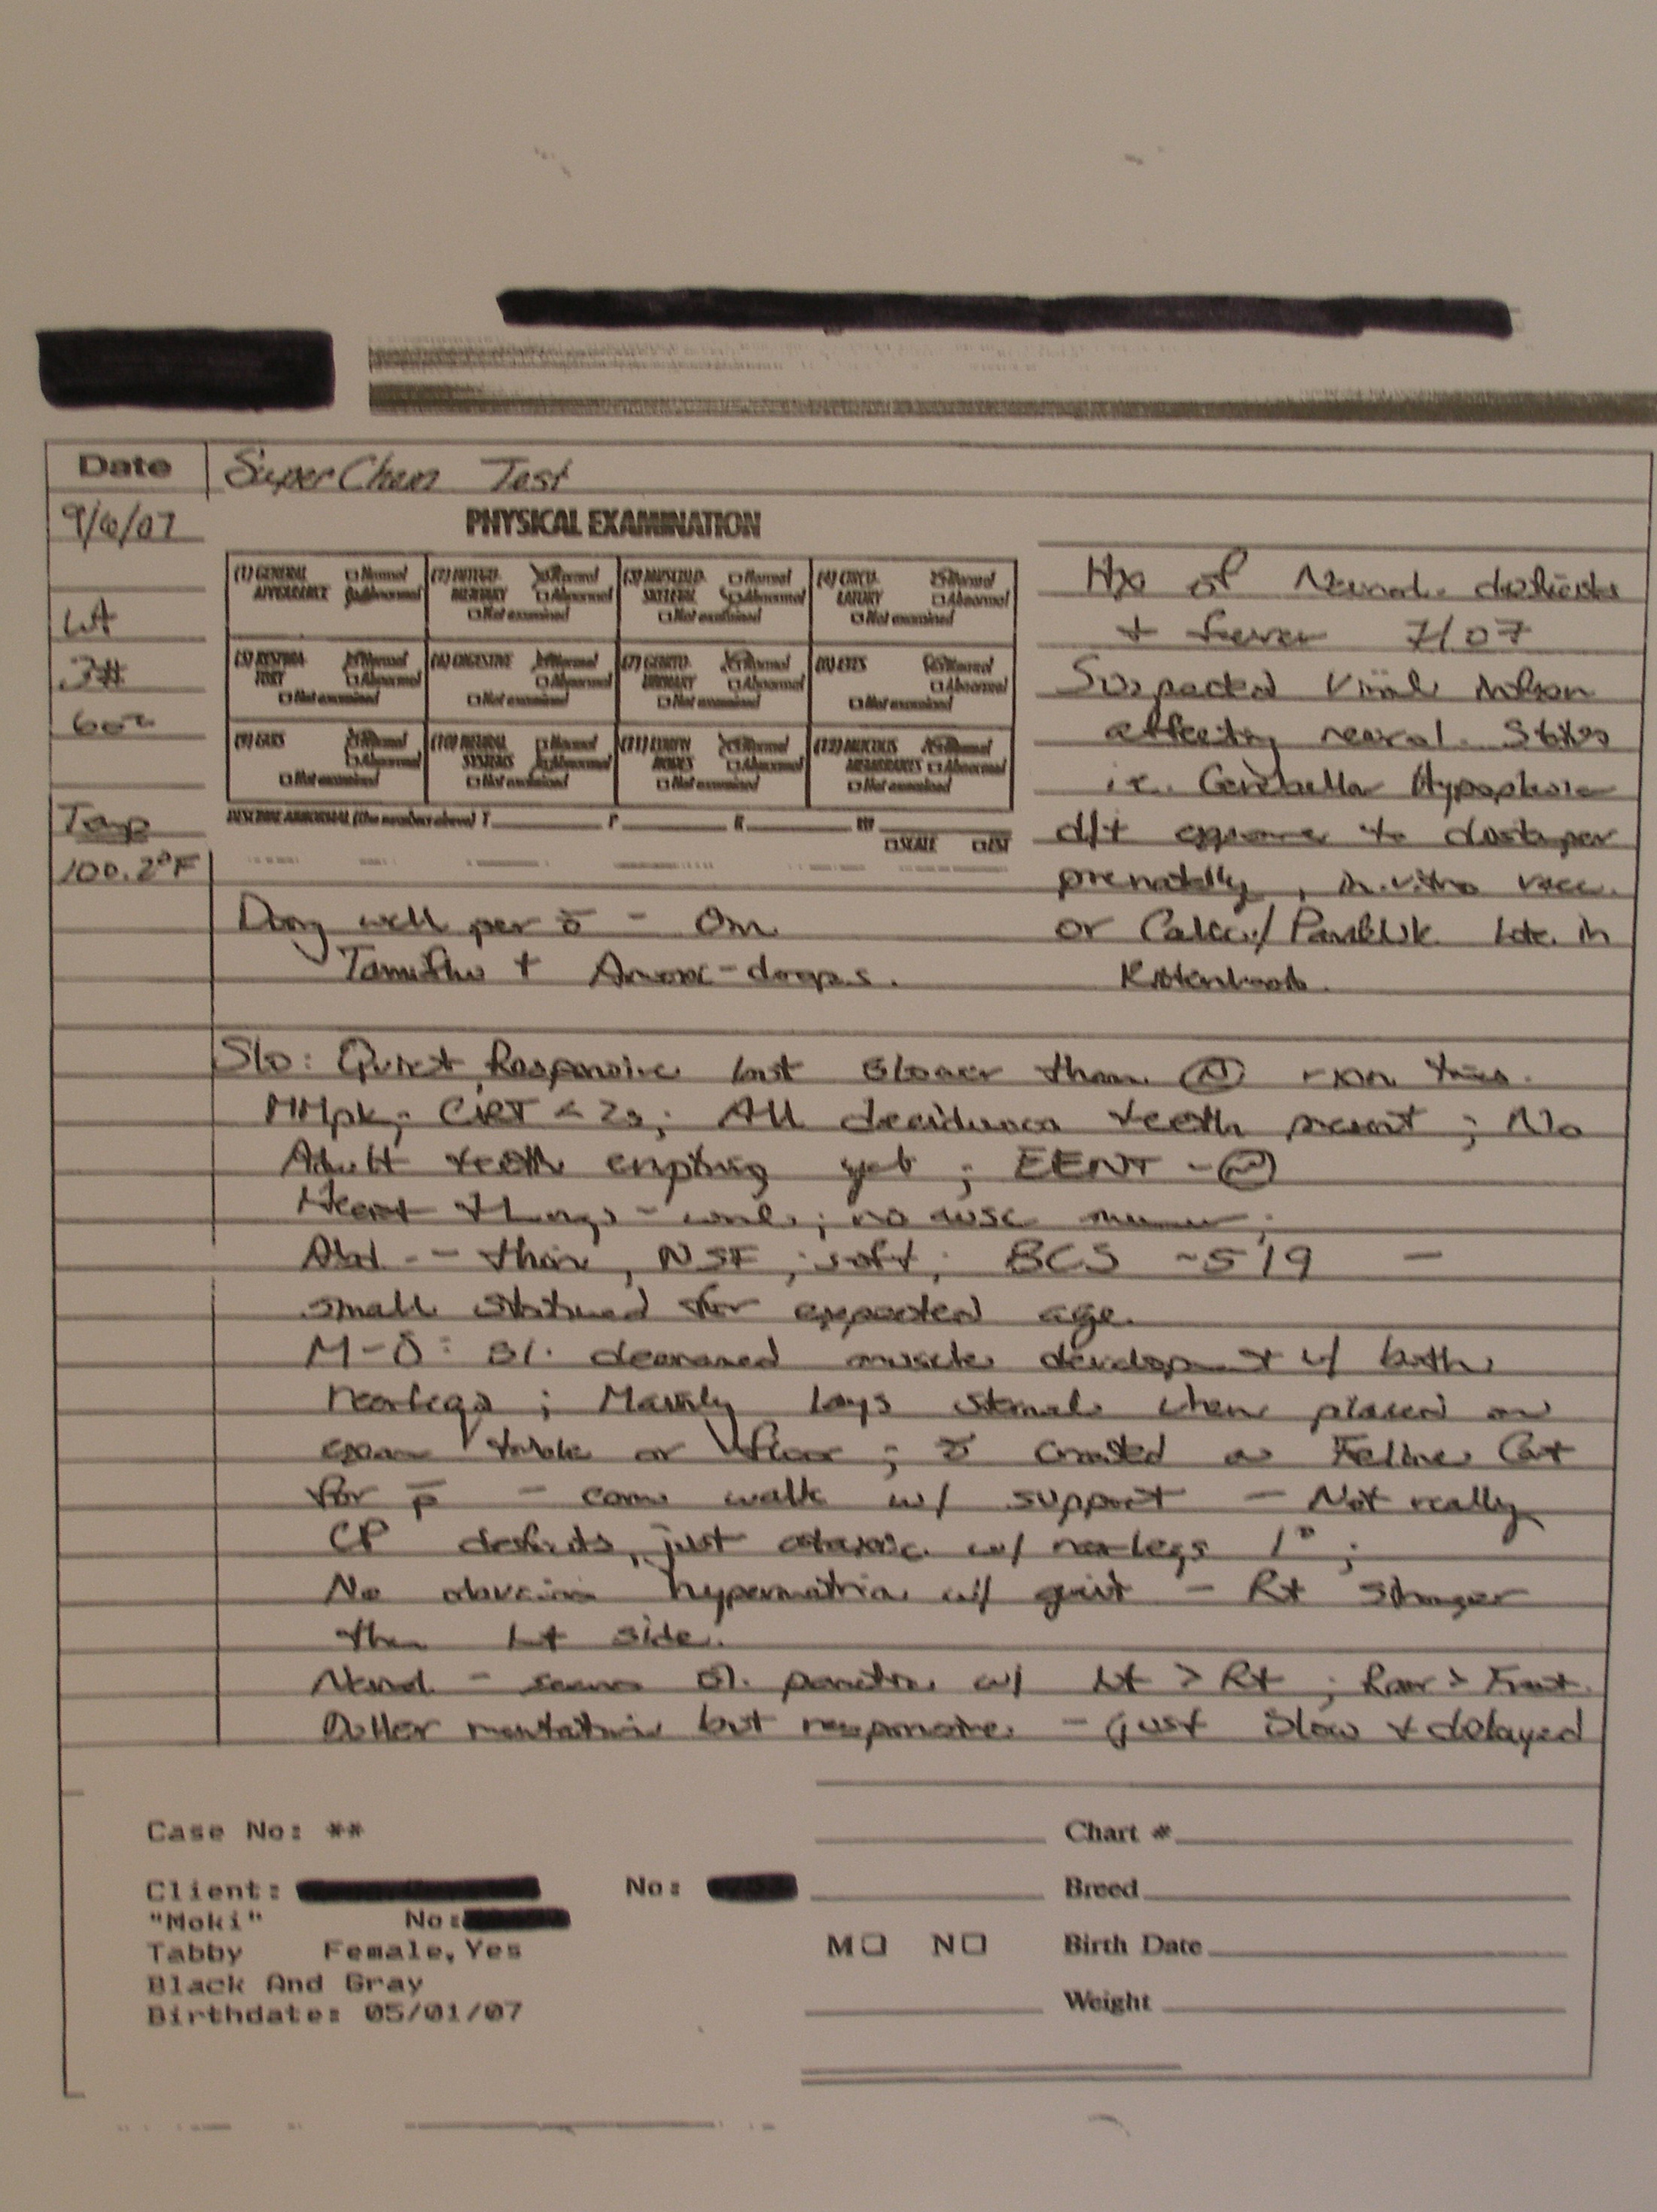 Date
SuperChem Test
9/6/07
PHYSICAL EXAMINATION
(1) GENERAL APPEARANCE □Normal □Abnormal
(2) INTEGUMENTARY □Normal □Abnormal □Not examined
(3) MUSCULOSKELETAL □Normal □Abnormal □Not examined
(4) CIRCULATORY □Normal □Abnormal □Not examined
(5) RESPIRATORY □Normal □Abnormal □Not examined
(6) DIGESTIVE □Normal □Abnormal □Not examined
(7) GENITOURINARY □Normal □Abnormal □Not examined
(8) EYES □Normal □Abnormal □Not examined
(9) EARS □Normal □Abnormal □Not examined
(10) NEURAL SYSTEMS □Normal □Abnormal □Not examined
(11) LYMPH NODES □Normal □Abnormal □Not examined
(12) MUCOUS MEMBRANES □Abnormal □Normal □Not examined
DESCRIBE ABNORMAL (Use numbers above) T P R WT
□SCALE □EST
Wt
3#
6oz
Temp
100.2°F
Hx of Neurol. deficits
+ fever 7/07
Suspected Viral
affecting neurol. Status
i.e. Cerebellar
d/t exposure to distemper
prenatally, in-vitro vacc.
or Calici/Panleuk late in
Kittenhood.
Doing well per ō - On
Tamiflu + Amoxi-drops.
S/o: Quiet, Responsive but slower than (N) rxn times.
MMpk; CRT < 2s; All deciduous teeth present; No
Adult teeth erupting yet; EENT - (N)
Heart + lungs - ; no
Abd. - thin, NSF, soft; BCS ~5/9 -
small statured for expected age.
M-S: sl. decreased muscle development w/ both
rearlegs; Mainly lays sternal when placed on
exam table or floor; ō created a Feline Cart
for p - can walk w/ support - Not really
CP deficits, just ataxic w/ rearlegs 1°;
No obvious hypermetria w/ gait - Rt stronger
than Lt side.
Neurol - seems sl. w/ Lt > Rt; Rear > Front.
Duller mentation but responsive - just slow + delayed
Case No: **
Client: No:
"Moki" No:
Tabby Female,Yes
Black And Gray
Birthdate: 05/01/07
M□ N□
Chart #
Breed
Birth Date
Weight